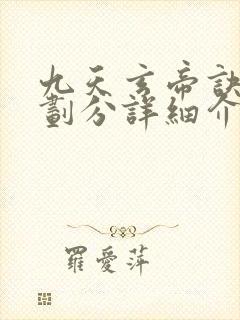 九天玄帝訣
劃分詳細介
羅愛萍